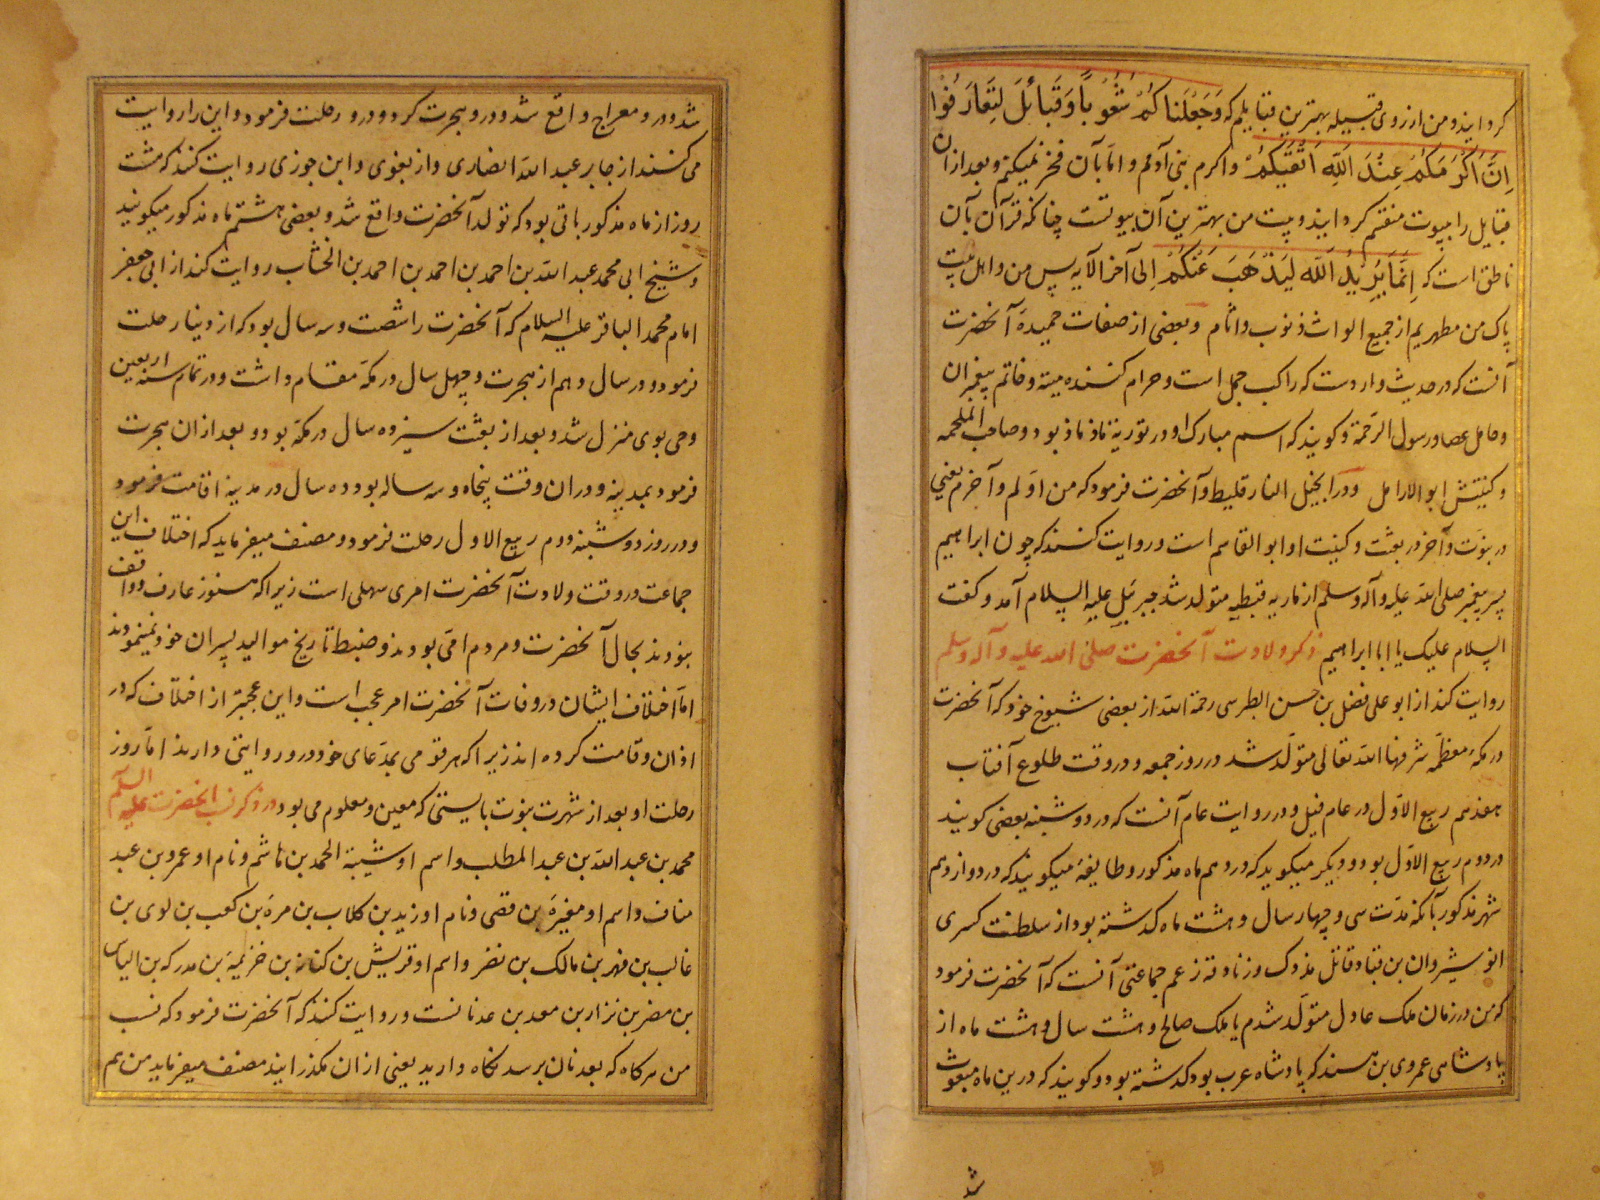 گردانید و من از روی قبیله بهترین قبایلم که وَجَعَلْنَاكُمْ شُعُوبًا وَقَبَائِلَ لِتَعَارَفُوْا
اِنَّ اَكْرَمَكُمْ عِنْدَ اللَّهِ اَتْقَيكُمْ و اکرم بنی آدمم و اما بآن فخر نمیکنم و بعد از آن
قبایل را ببیوت منقسم گردانید و بیت من بهترین آن بیوتست چنانکه قرآن بآن
ناطق است که اِنَّمَا يُرِيْدُ اللَّه لِيَذْهَبَ عَنْكُمْ اِلی آخر الآیه پس من و اهل بیت
پاک من مطهریم از جمیع الواث ذنوب و اثام و بعضی از صفات حمیدهٔ آنحضرت
آنست که در حدیث وارد است که راکب جمل است و حرام کننده میته و خاتم پیغمبران
و حامل عصا و رسول الرحمة و گویند که اسم مبارک او در توریة ماذ ماذ بود و صاحب الملحمه
و کنیتش ابو الارامل و در انجیل الفار قلیط و آنحضرت فرمود که من اولم و آخرم یعنی
در نبوت و آخر در بعثت و کنیت او ابو القاسم است و روایت کنند که چون ابراهیم
پسر پیغمبر صلی الله علیه و آله و سلم از ماریه قبطیه متولد شد جبرئیل علیه السلام آمد و گفت
السلام علیک یا ابا ابراهیم ذکر ولادت آنحضرت صلی الله علیه و آله و سلم
روایت کند از ابو علی فضل بن حسن الطبرسی رحمة الله از بعضی شیوخ خود که آنحضرت
در مکهٔ معظمه شرفها الله تعالی متولد شد در روز جمعه و در وقت طلوع آفتاب
هفدهم ربیع الاول در عام فیل و در روایت عام آنست که در دوشنبه بعضی گویند
در دوم ربیع الاول بود و دیگر میگوید که در دهم ماه مذکور و طایفهٔ میگویند که در دوازدهم
شهر مذکور بآنکه مدت سی و چهار سال و هشت ماه گذشته بود از سلطنت کسری
انوشیروان بن قباد قاتل مزدک و زنادقه زعم جماعتی آنست که آنحضرت فرمود
که من در زمان ملک عادل متولد شدم یا ملک صالح و هشت سال و هشت ماه از
پادشاهی عمروی بن هند که پادشاه عرب بود گذشته بود و گویند که درین ماه مبعوث
شد
شد و در و معراج واقع شد و در و هجرت کرد و در و رحلت فرمود و این را روایت
می کنند از جابر عبد الله انصاری و از بغوی و ابن جوزی روایت کنند که هشت
روز از ماه مذکور باقی بود که تولد آنحضرت واقع شد و بعضی هشتم ماه مذکور میگویند
و شیخ ابی محمد عبد الله بن احمد بن احمد بن احمد بن الخشاب روایت کند از ابی جعفر
امام محمد الباقر علیه السلام که آنحضرت را شصت و سه سال بود که از دنیا رحلت
فرمود و در سال دهم از هجرت و چهل سال در مکه مقام داشت و در تمام سنه اربعین
وحی بوی منزل شد و بعد از بعثت سیزده سال در مکه بود و بعد از ان هجرت
فرمود بمدینه و در ان وقت پنجاه و سه ساله بود و ده سال در مدینه اقامت فرمود
و در روز دوشنبه دوم ربیع الاول رحلت فرمود و مصنف میفرماید که اختلاف این
جماعت در وقت ولادت آنحضرت امری سهلی است زیرا که هنوز عارف و واقف
نبودند بحال آنحضرت و مردم امی بودند و ضبط تاریخ موالید پسران خود نمینمودند
اما اختلاف ایشان در وفات آنحضرت امر عجب است و این عجبتر از اختلاف که در
اذان و قامت کرده اند زیرا که هر قومی بمدعای خود درو روایتی دارند اما روز
رحلت او بعد از شهرت نبوت بایستی که معین و معلوم می بود در ذکر نسب آنحضرت علیه السلم
محمد بن عبد الله بن عبد المطلب و اسم او شیبة الحمد بن هاشم و نام او عمرو بن عبد
مناف و اسم او مغیرة بن قصی و نام او زید بن کلاب بن مرة بن کعب بن لوی بن
غالب بن فهر بن مالک بن نضر و اسم او قریش بن کنانه بن خزیمة بن مدرکه بن الیاس
بن مضر بن نزار بن معد بن عدنانست و روایت کنند که آنحضرت فرمود که نسب
من هرگاه که بعدنان برسد نگاه دارید یعنی از ان مگذرانید مصنف میفرماید من هم